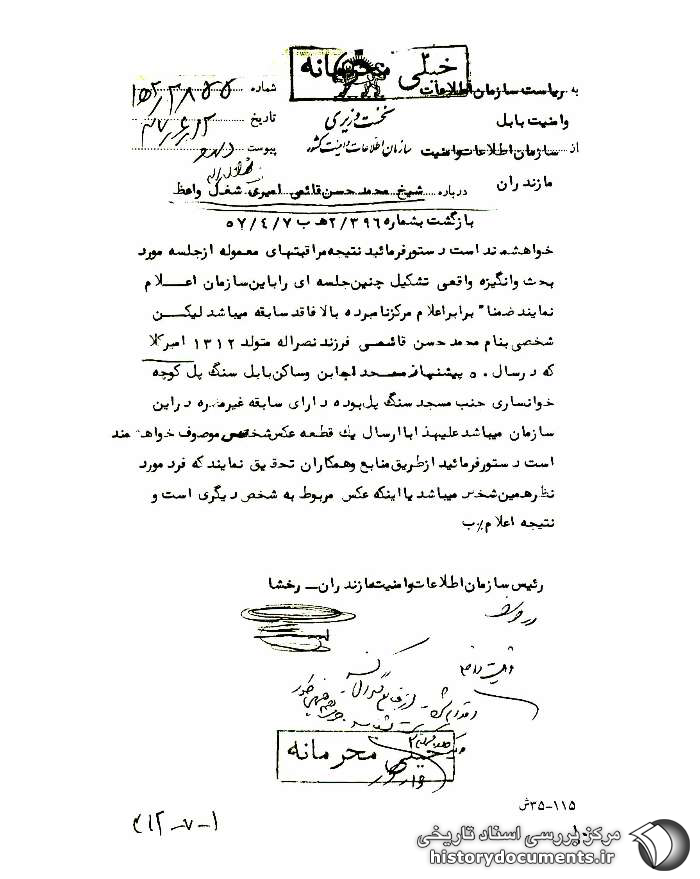 خیلی محرمانه
به ریاست سازمان اطلاعات
شماره
وامنیت بابل
نخست وزیری
تاریخ
از سازمان اطلاعات وامنیت
سازمان اطلاعات و امنیت کشور
پیوست
مازندران
درباره شیخ محمد حسن قائمی امیری شغل واعظ
بازگشت بشماره ۲/۳۹۶ هـ ب ۵۷/۴/۷
خواهشمند است دستور فرمائید نتیجه مراقبتهای معموله از جلسه مورد
بحث وانگیزه واقعی تشکیل چنین جلسه ای را باین سازمان اعلام
نمایند ضمنا" برابر اعلام مرکز نامبرده بالا فاقد سابقه میباشد لیکن
شخصی بنام محمد حسن قائمی فرزند نصراله متولد ۱۳۱۲ امیرکلا
که در سال ۵۰ پیشنماز مسجد وساکن بابل سنگ پل کوچه
خوانساری جنب مسجد سنگ پل بوده دارای سابقه غیر مضره در این
سازمان میباشد علیهذا با ارسال یك قطعه عکس شخص موصوف خواهشمند
است دستور فرمائید از طریق منابع وهمکاران تحقیق نمایند که فرد مورد
نظر همین شخص میباشد یا اینکه عکس مربوط به شخص دیگری است و
نتیجه اعلام/ب
رئیس سازمان اطلاعات وامنیت مازندران ـ رخشا
خیلی محرمانه
۱۱۵-۳۵ش
۴۱۲-۷-۱
مرکز بررسی اسناد تاریخی
historydocuments.ir